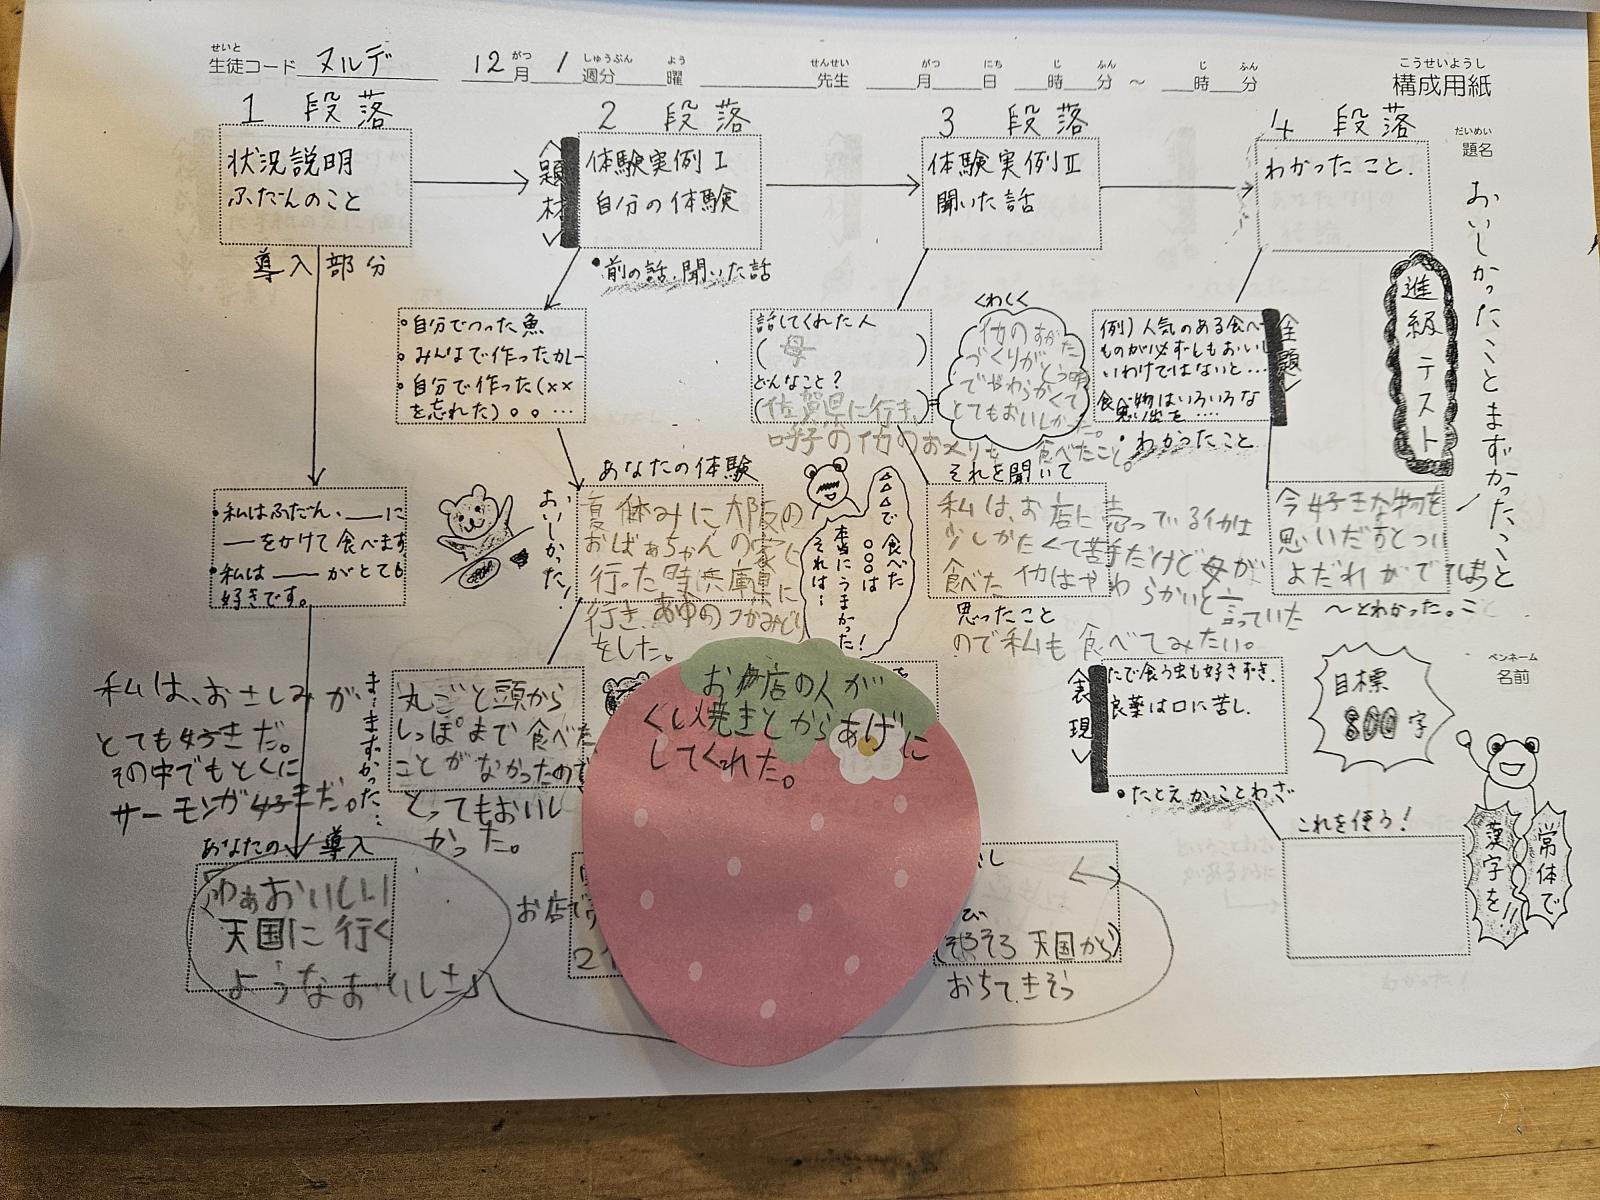 せいと
生徒コード ヌルデ 12月 1週分 曜 先生 月 日 時 分 ～ 時 分
がつ しゅうぶん よう せんせい がつ にち じ ふん じ ふん
こうせいようし
構成用紙
だいめい
題名
おいしかったことまずかったこと
進級テスト
1 段落
状況説明
ふだんのこと
導入部分
・私はふだん、＿＿に
＿をかけて食べます
・私は＿＿がとても
好きです。
私は、おさしみが
とても好きだ。
その中でもとくに
サーモンが好きだ。
あなたの導入
わぁおいしい
天国に行く
ようなおいしさ
2 段落
〈題材〉
体験実例Ⅰ
自分の体験
・前の話、聞いた話
・自分でつった魚
・みんなで作ったカレー
・自分で作った(××
を忘れた)○○…
あなたの体験
夏休みに大阪の
おばぁちゃんの家に
行った時兵庫県に
行き、あゆのつかみどり
をした。
おいしかった!
ま…まずかった…
丸ごと頭から
しっぽまで食べた
ことがなかったので
とってもおいし
かった。
お店の人が
くし焼きとからあげに
してくれた。
お店で
3 段落
体験実例Ⅱ
聞いた話
話してくれた人
( 母 )
どんなこと?
(佐賀県に行き、
呼子のイカのおつくりも
食べたこと。
くわしく
イカのすがた
づくりがとう明
でやわらかくて
とてもおいしかった。
△△△で食べた
○○○は
本当にうまかった!
それは…
それを聞いて
私は、お店に売っているイカは
少しかたくて苦手だけど母が
食べたイカはやわらかいと言っていた
思ったこと
ので私も食べてみたい。
(そろそろ天国から)
おちてきそう
4 段落
わかったこと.
例)人気のある食べ
ものが必ずしもおいし
いわけではないと…
食べ物はいろいろな
思い出を….
〈主題〉
・わかったこと
今好きな物を
思いだすとつい
よだれがでてしまう
～とわかった。
〈表現〉
たで食う虫も好きずき.
良薬は口に苦し.
・たとえかことわざ
これを使う!
ペンネーム
名前
目標
800字
常体で
漢字を!!